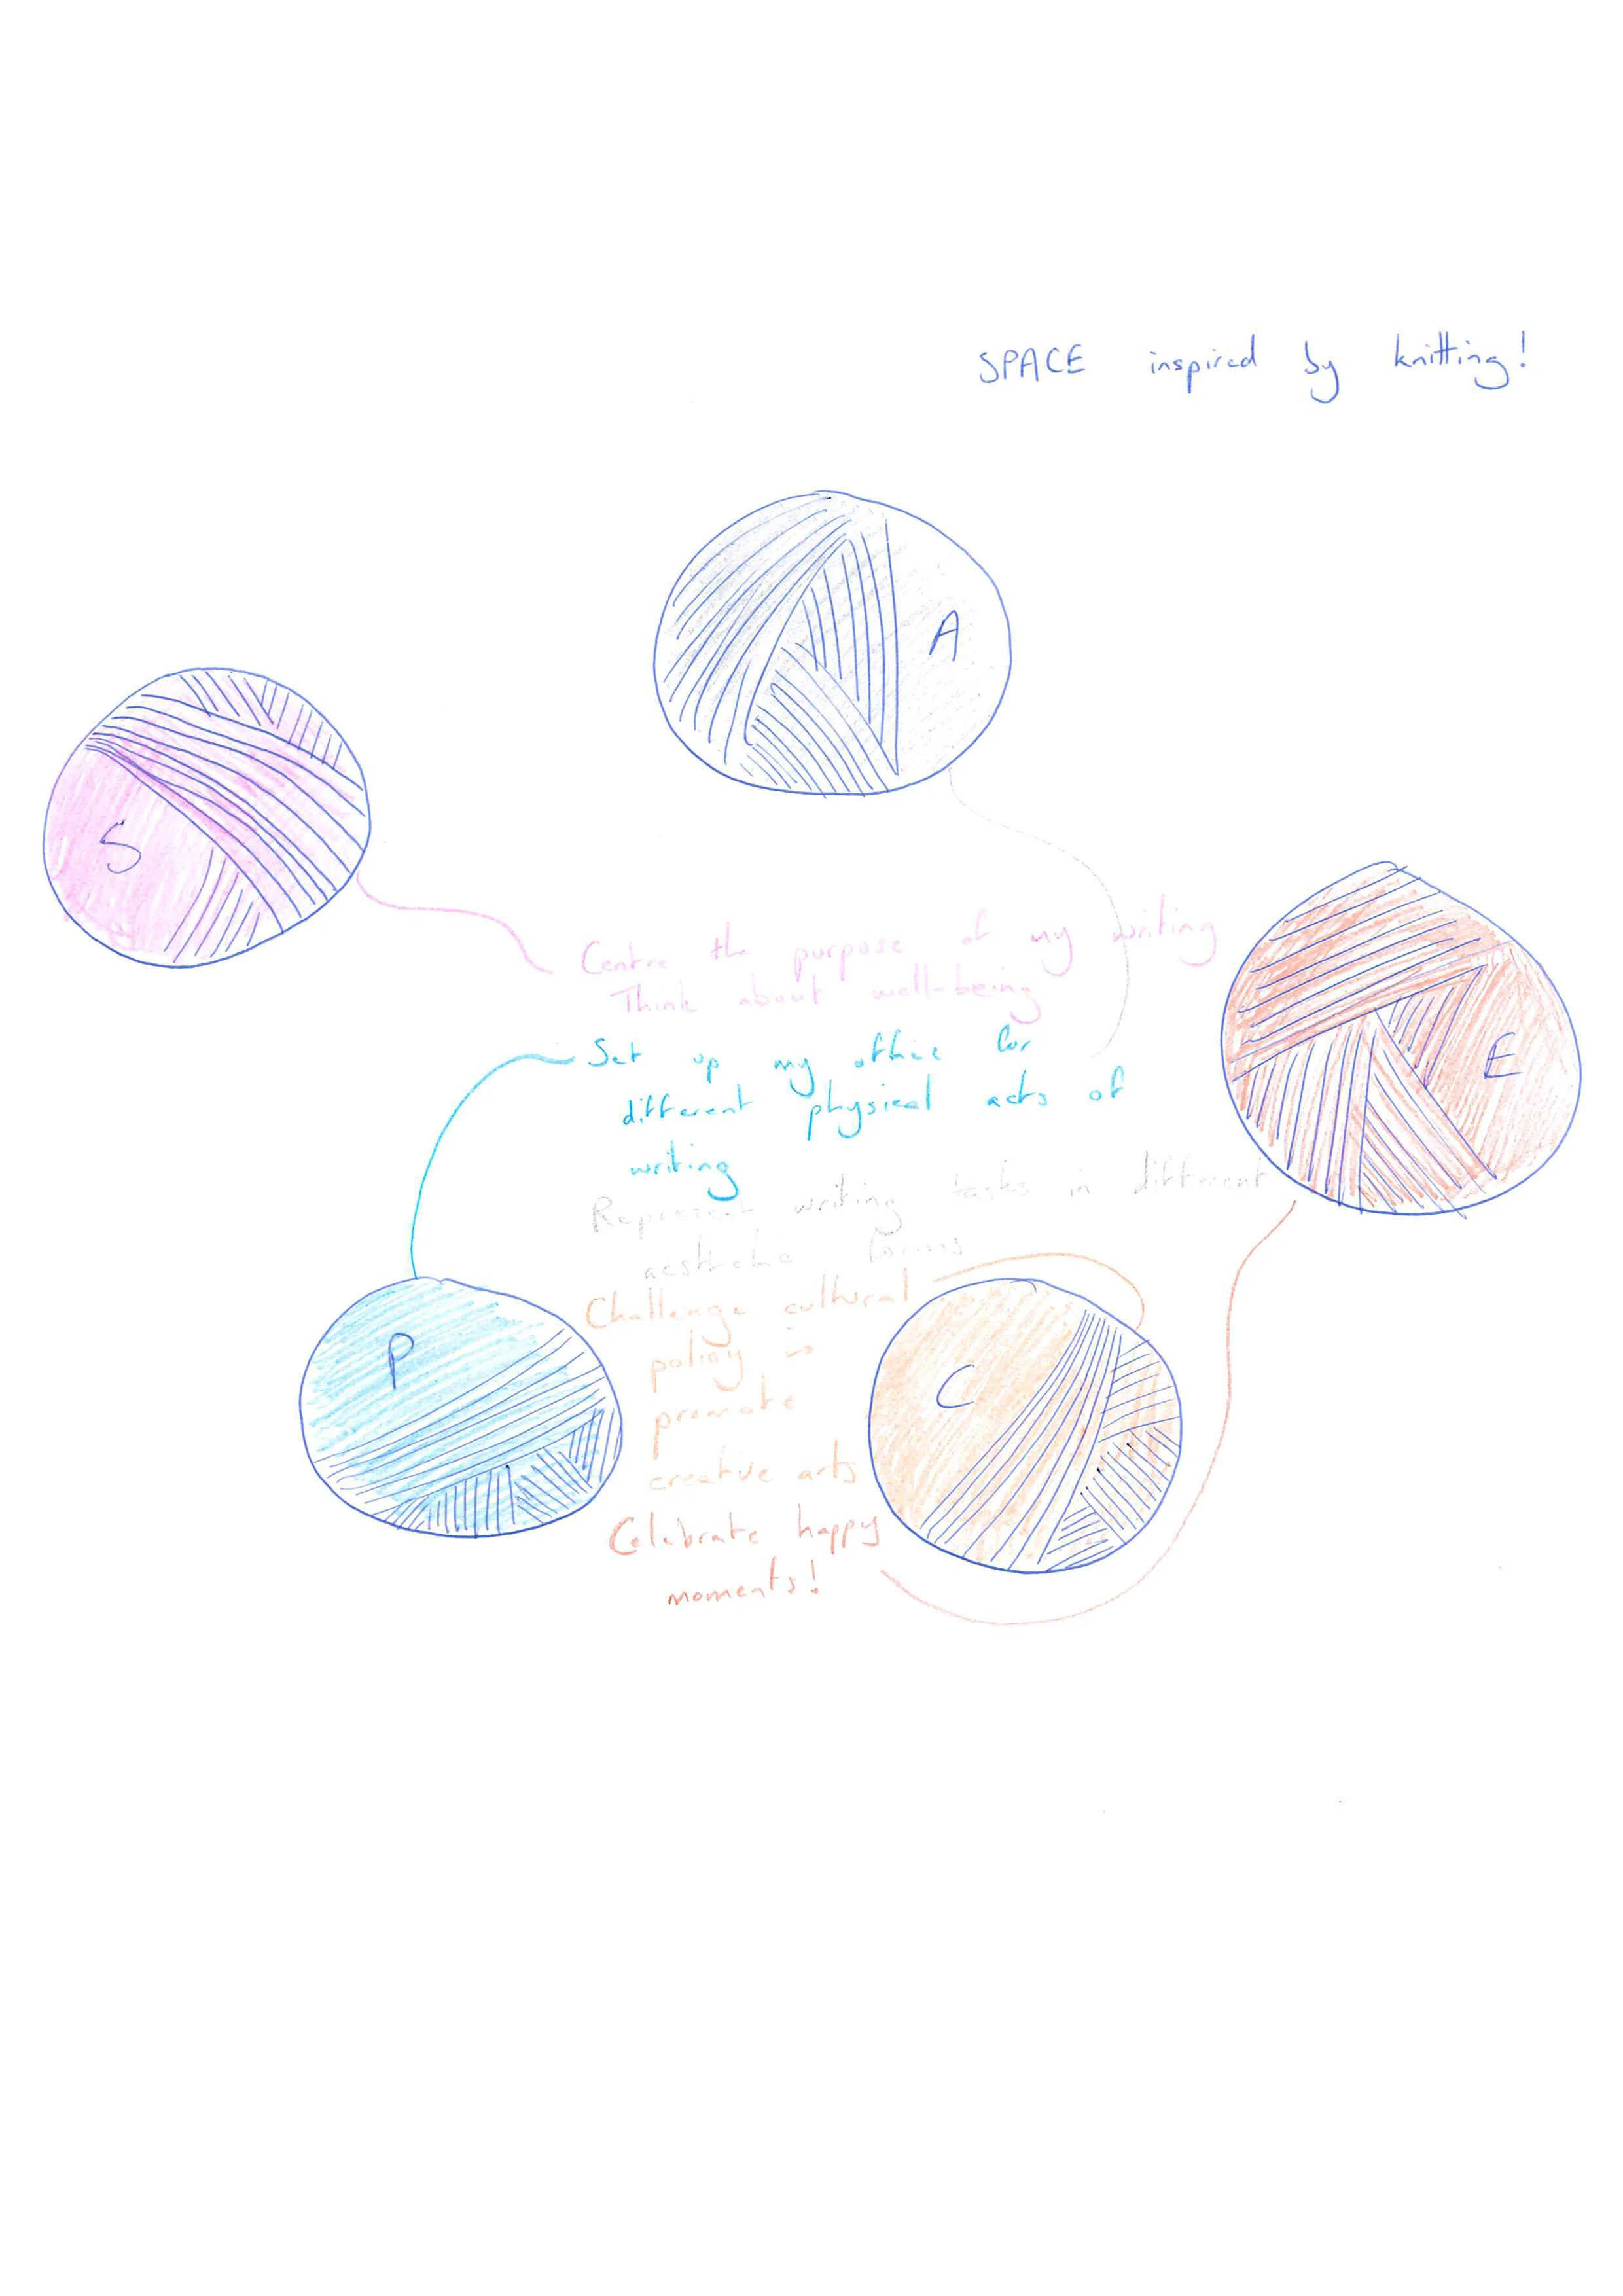 SPACE inspired by knitting!
A
S
E
Centre the purpose of my writing
Think about well-being
Set up my office for
different physical acts of
writing
Represent writing tasks in different
aesthetic forms
P
C
Challenge cultural
policy to
promote
creative arts
Celebrate happy
moments!